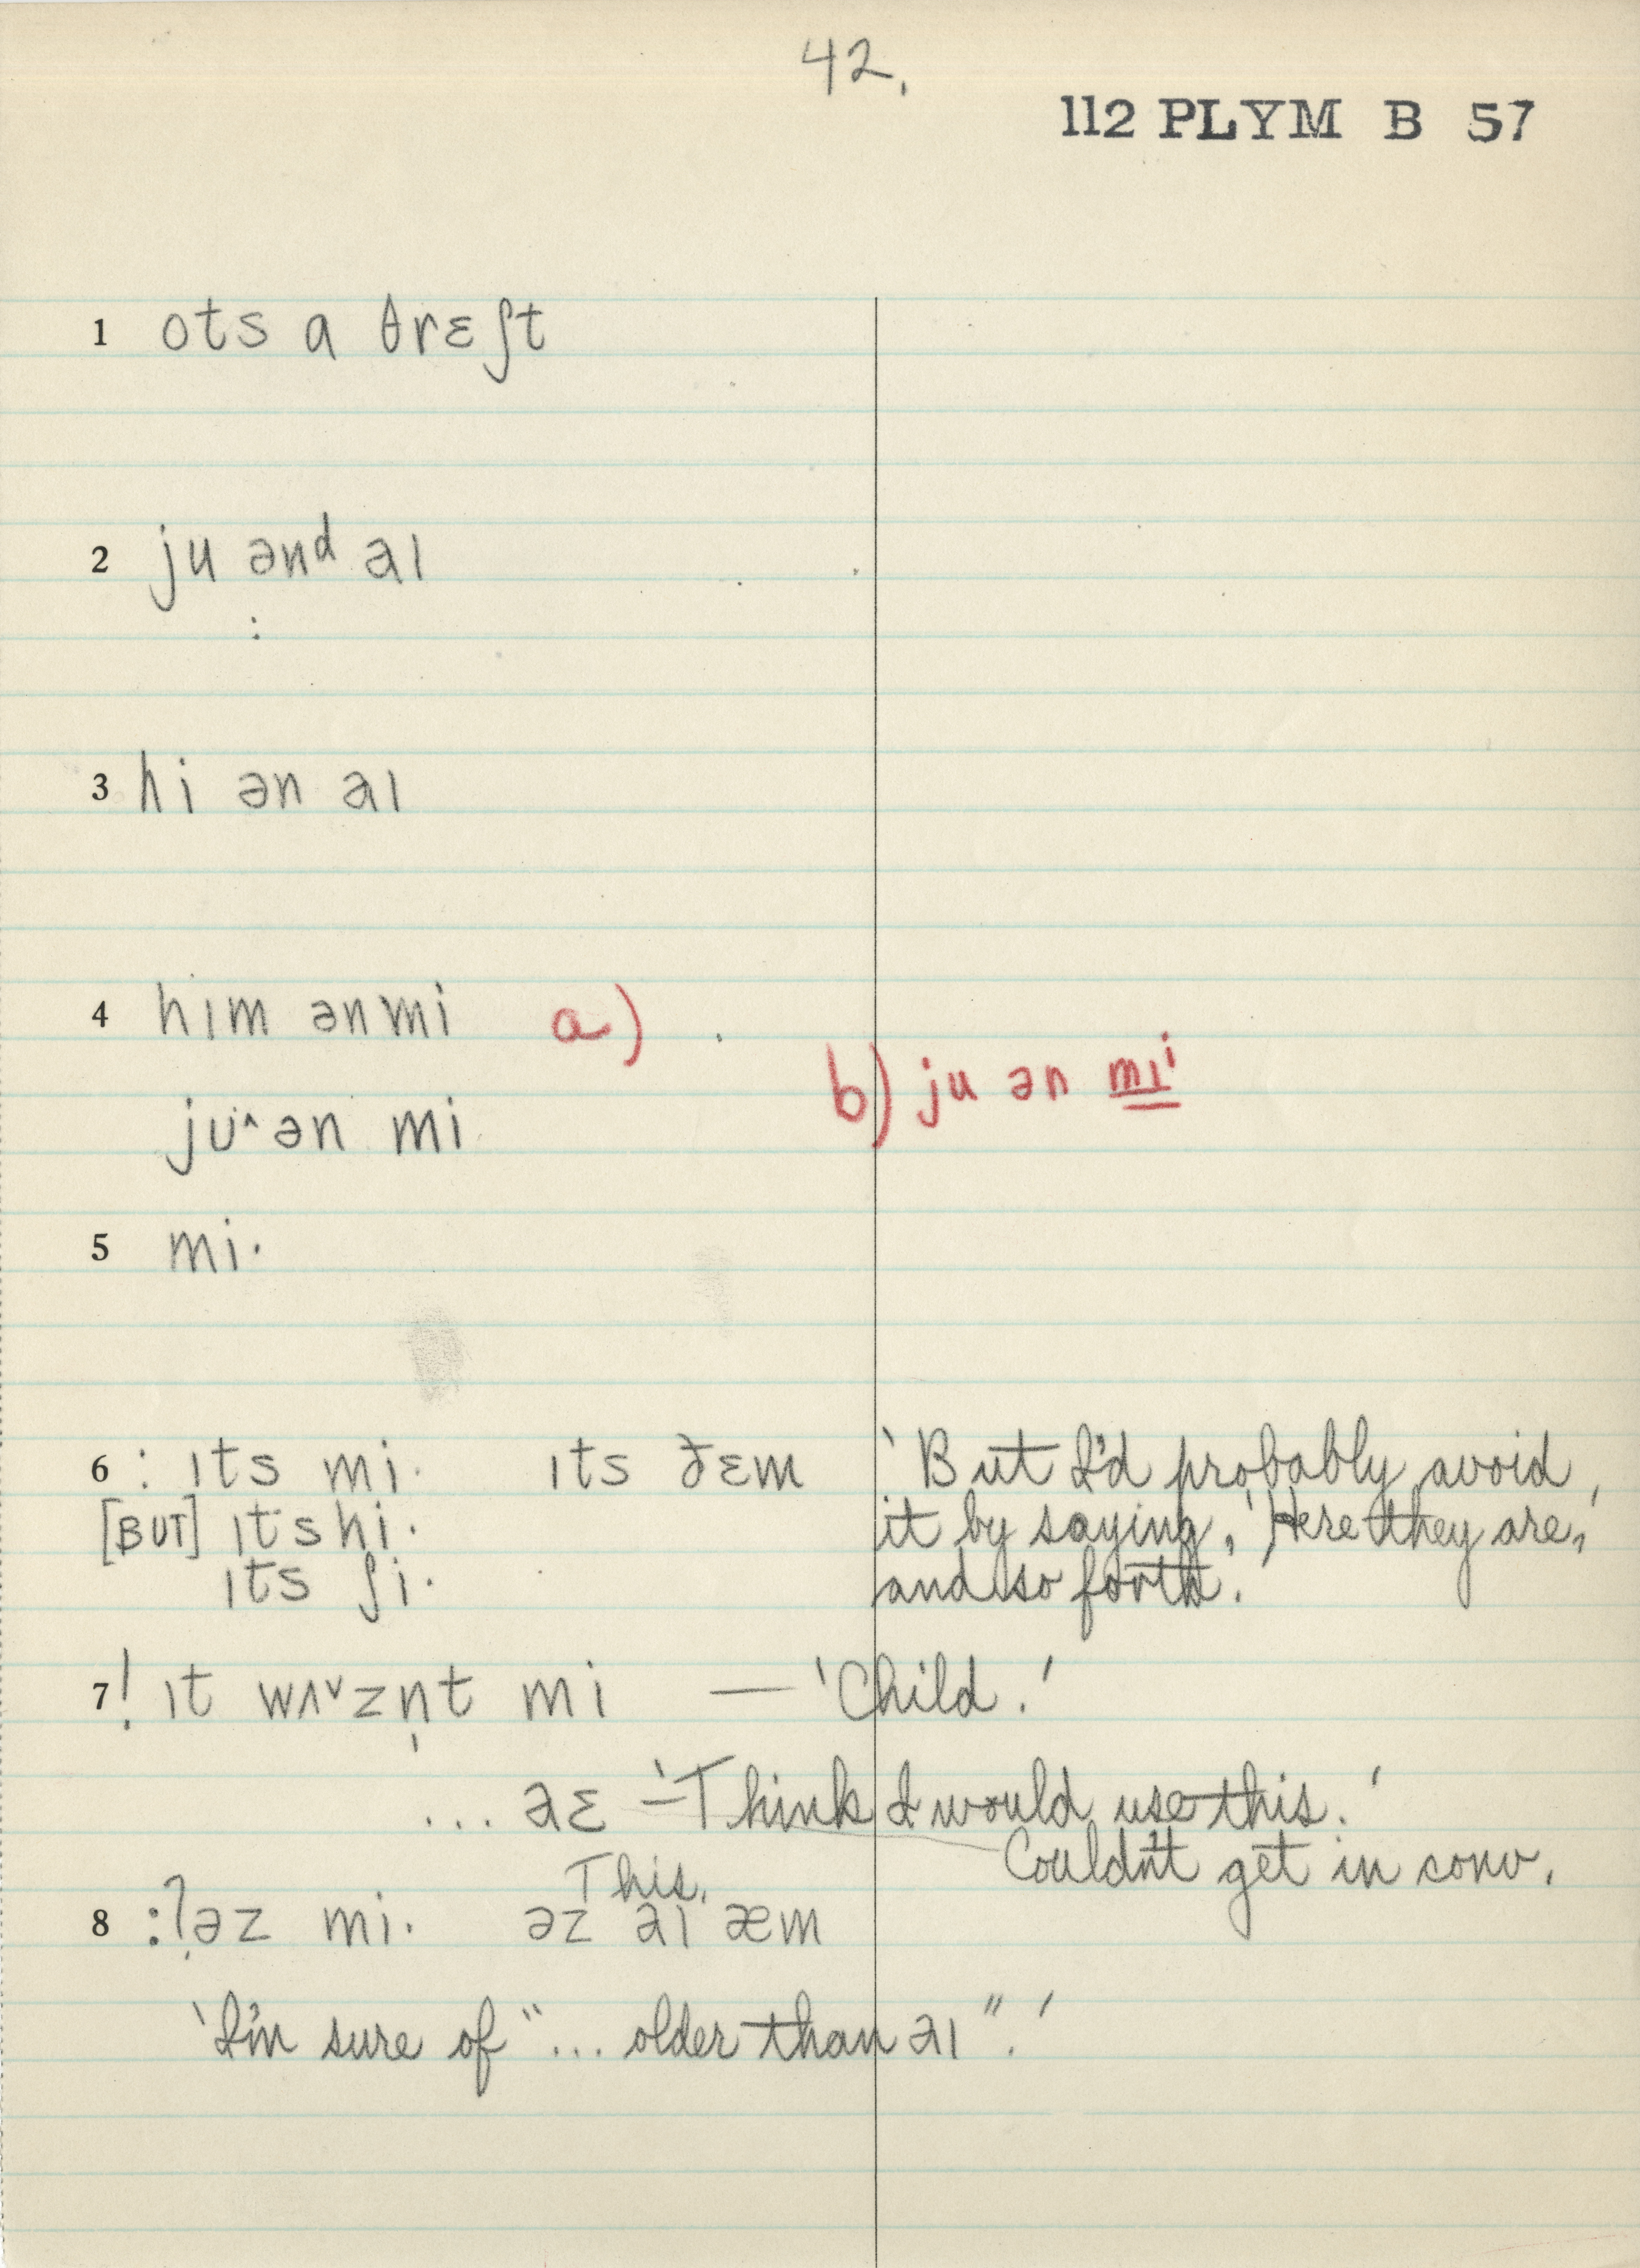 42.
112 PLYM B 57
1 ots a θrɛʃt
2 ju ənᵈ aɪ
:
3 hi ən aɪ
4 hɪm ən mi a)
b) ju ən mɪⁱ
ju^ ən mi
5 mi·
6 : ɪts mi· ɪts ðɛm 'But I'd probably avoid
[BUT] ɪts hi· it by saying, 'Here they are,'
ɪts ʃi· and so forth.'
7 ! ɪt wʌᵛzn̩t mi — 'Child.'
... aɛ – 'Think I would use this.'
Couldn't get in conv.
This.
8 :? əz mi· əz aɪ æm
'I'm sure of "... older than aɪ".'